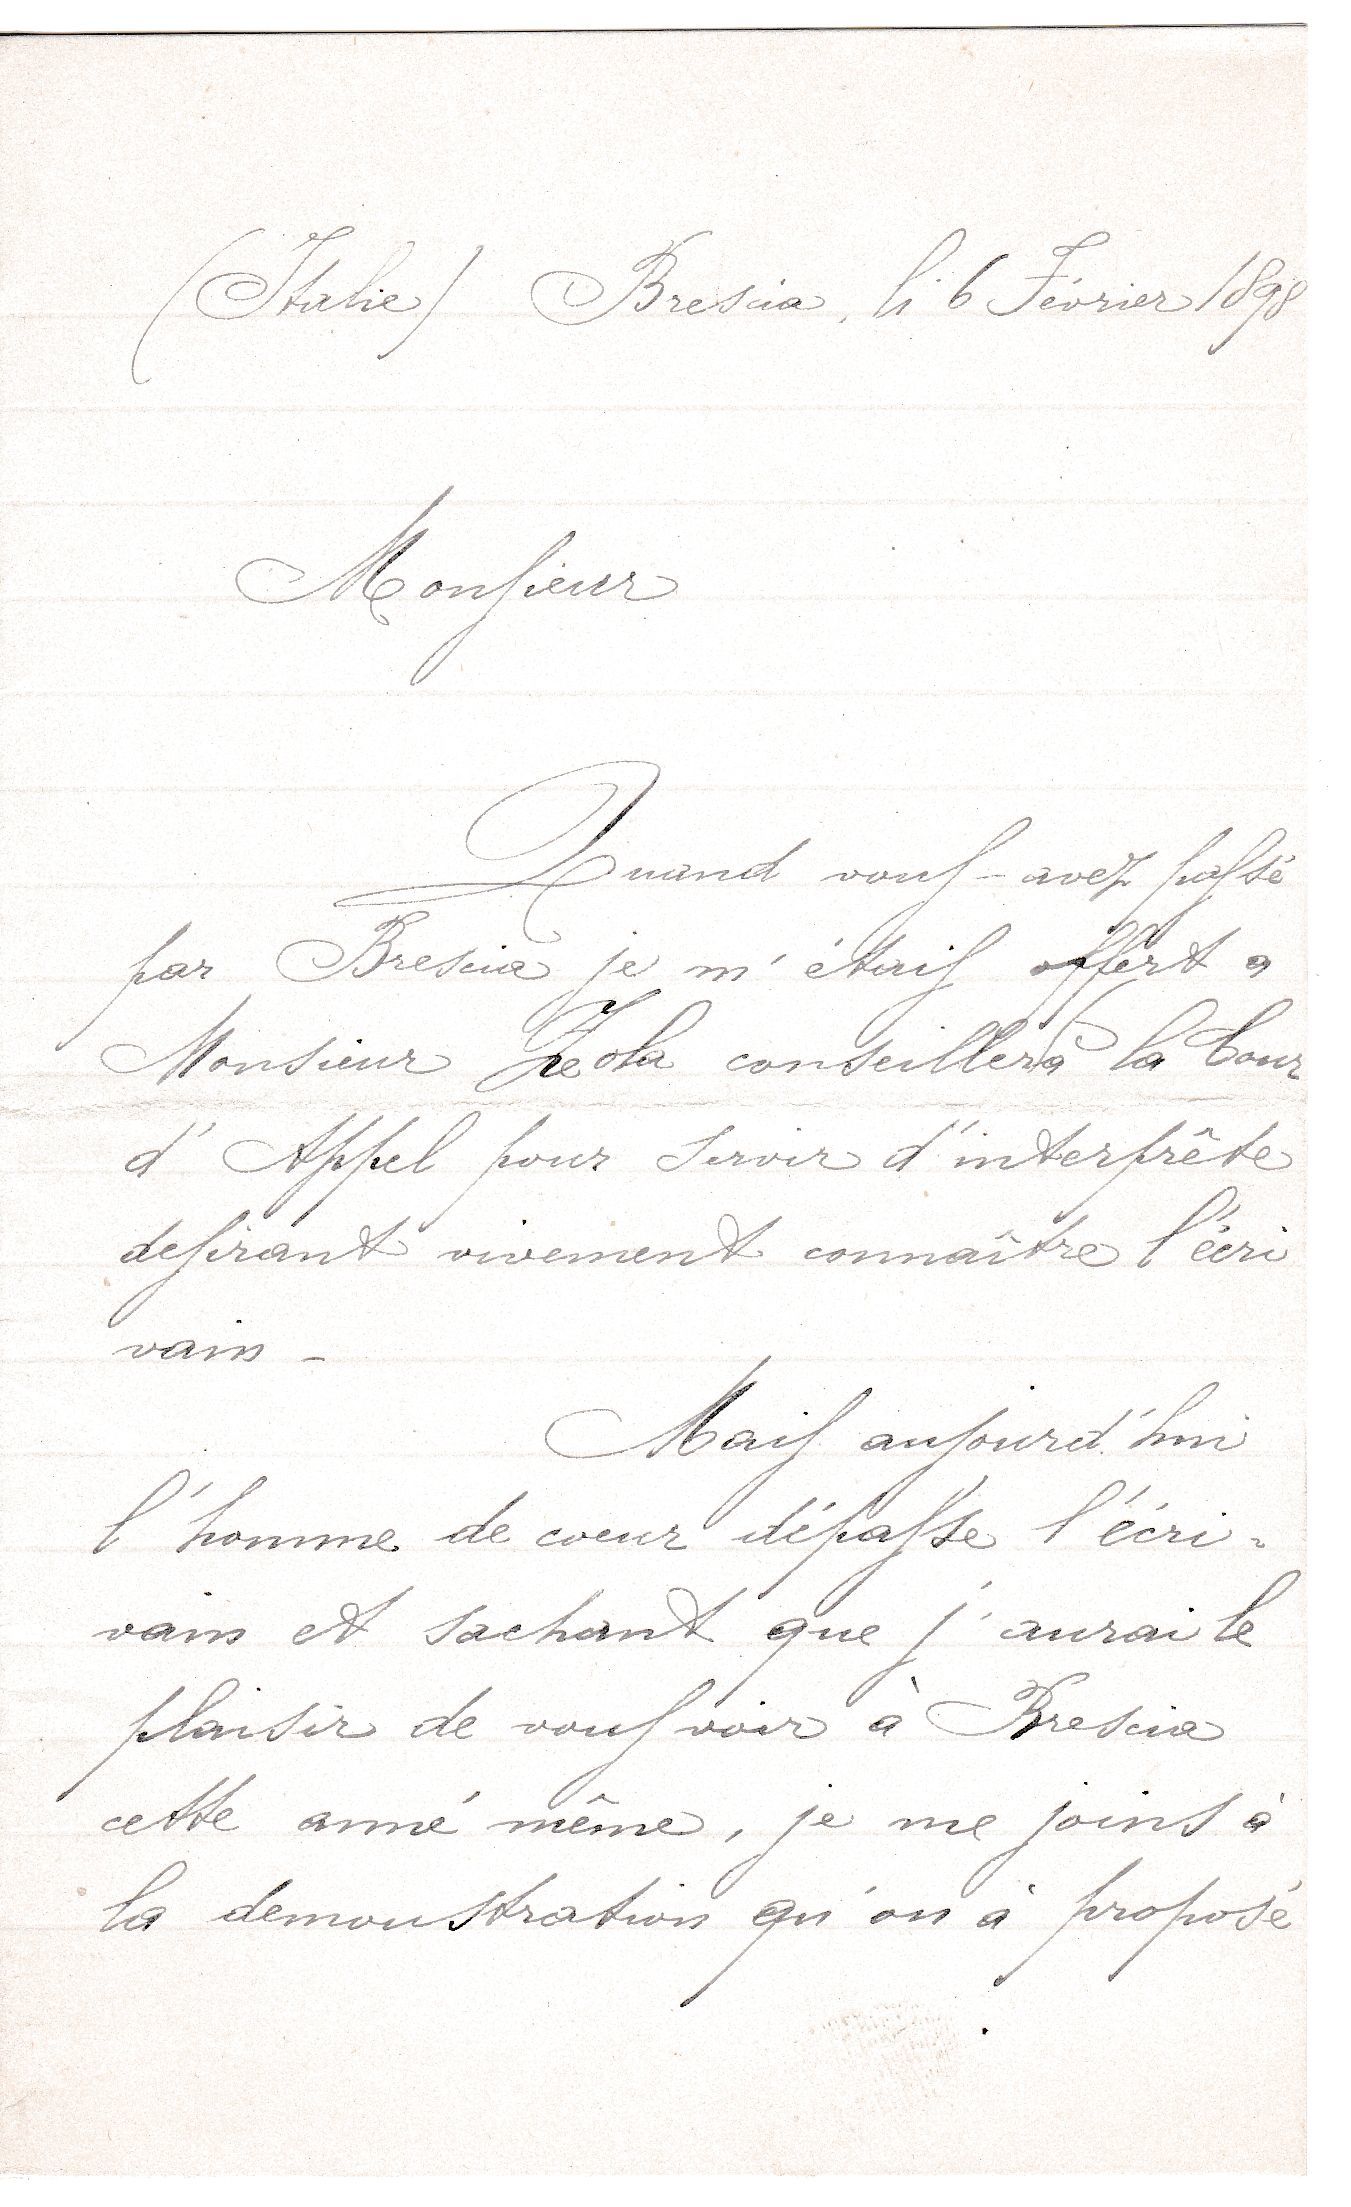 (Italie) Brescia, li 6 Février 1898
Monsieur
Quand vous-avez passé
par Brescia je m'étais offert a
Monsieur Zola conseiller à la Cour
d'Appel pour servir d'interprête
desirant vivement connaître l'écri
vain -
Mais aujourd'hui
l'homme de coeur dépasse l'écri-
vain et sachant que j'aurai le
plaisir de vous voir à Brescia
cette anné même, je me joins à
la demonstration qu'on à proposé